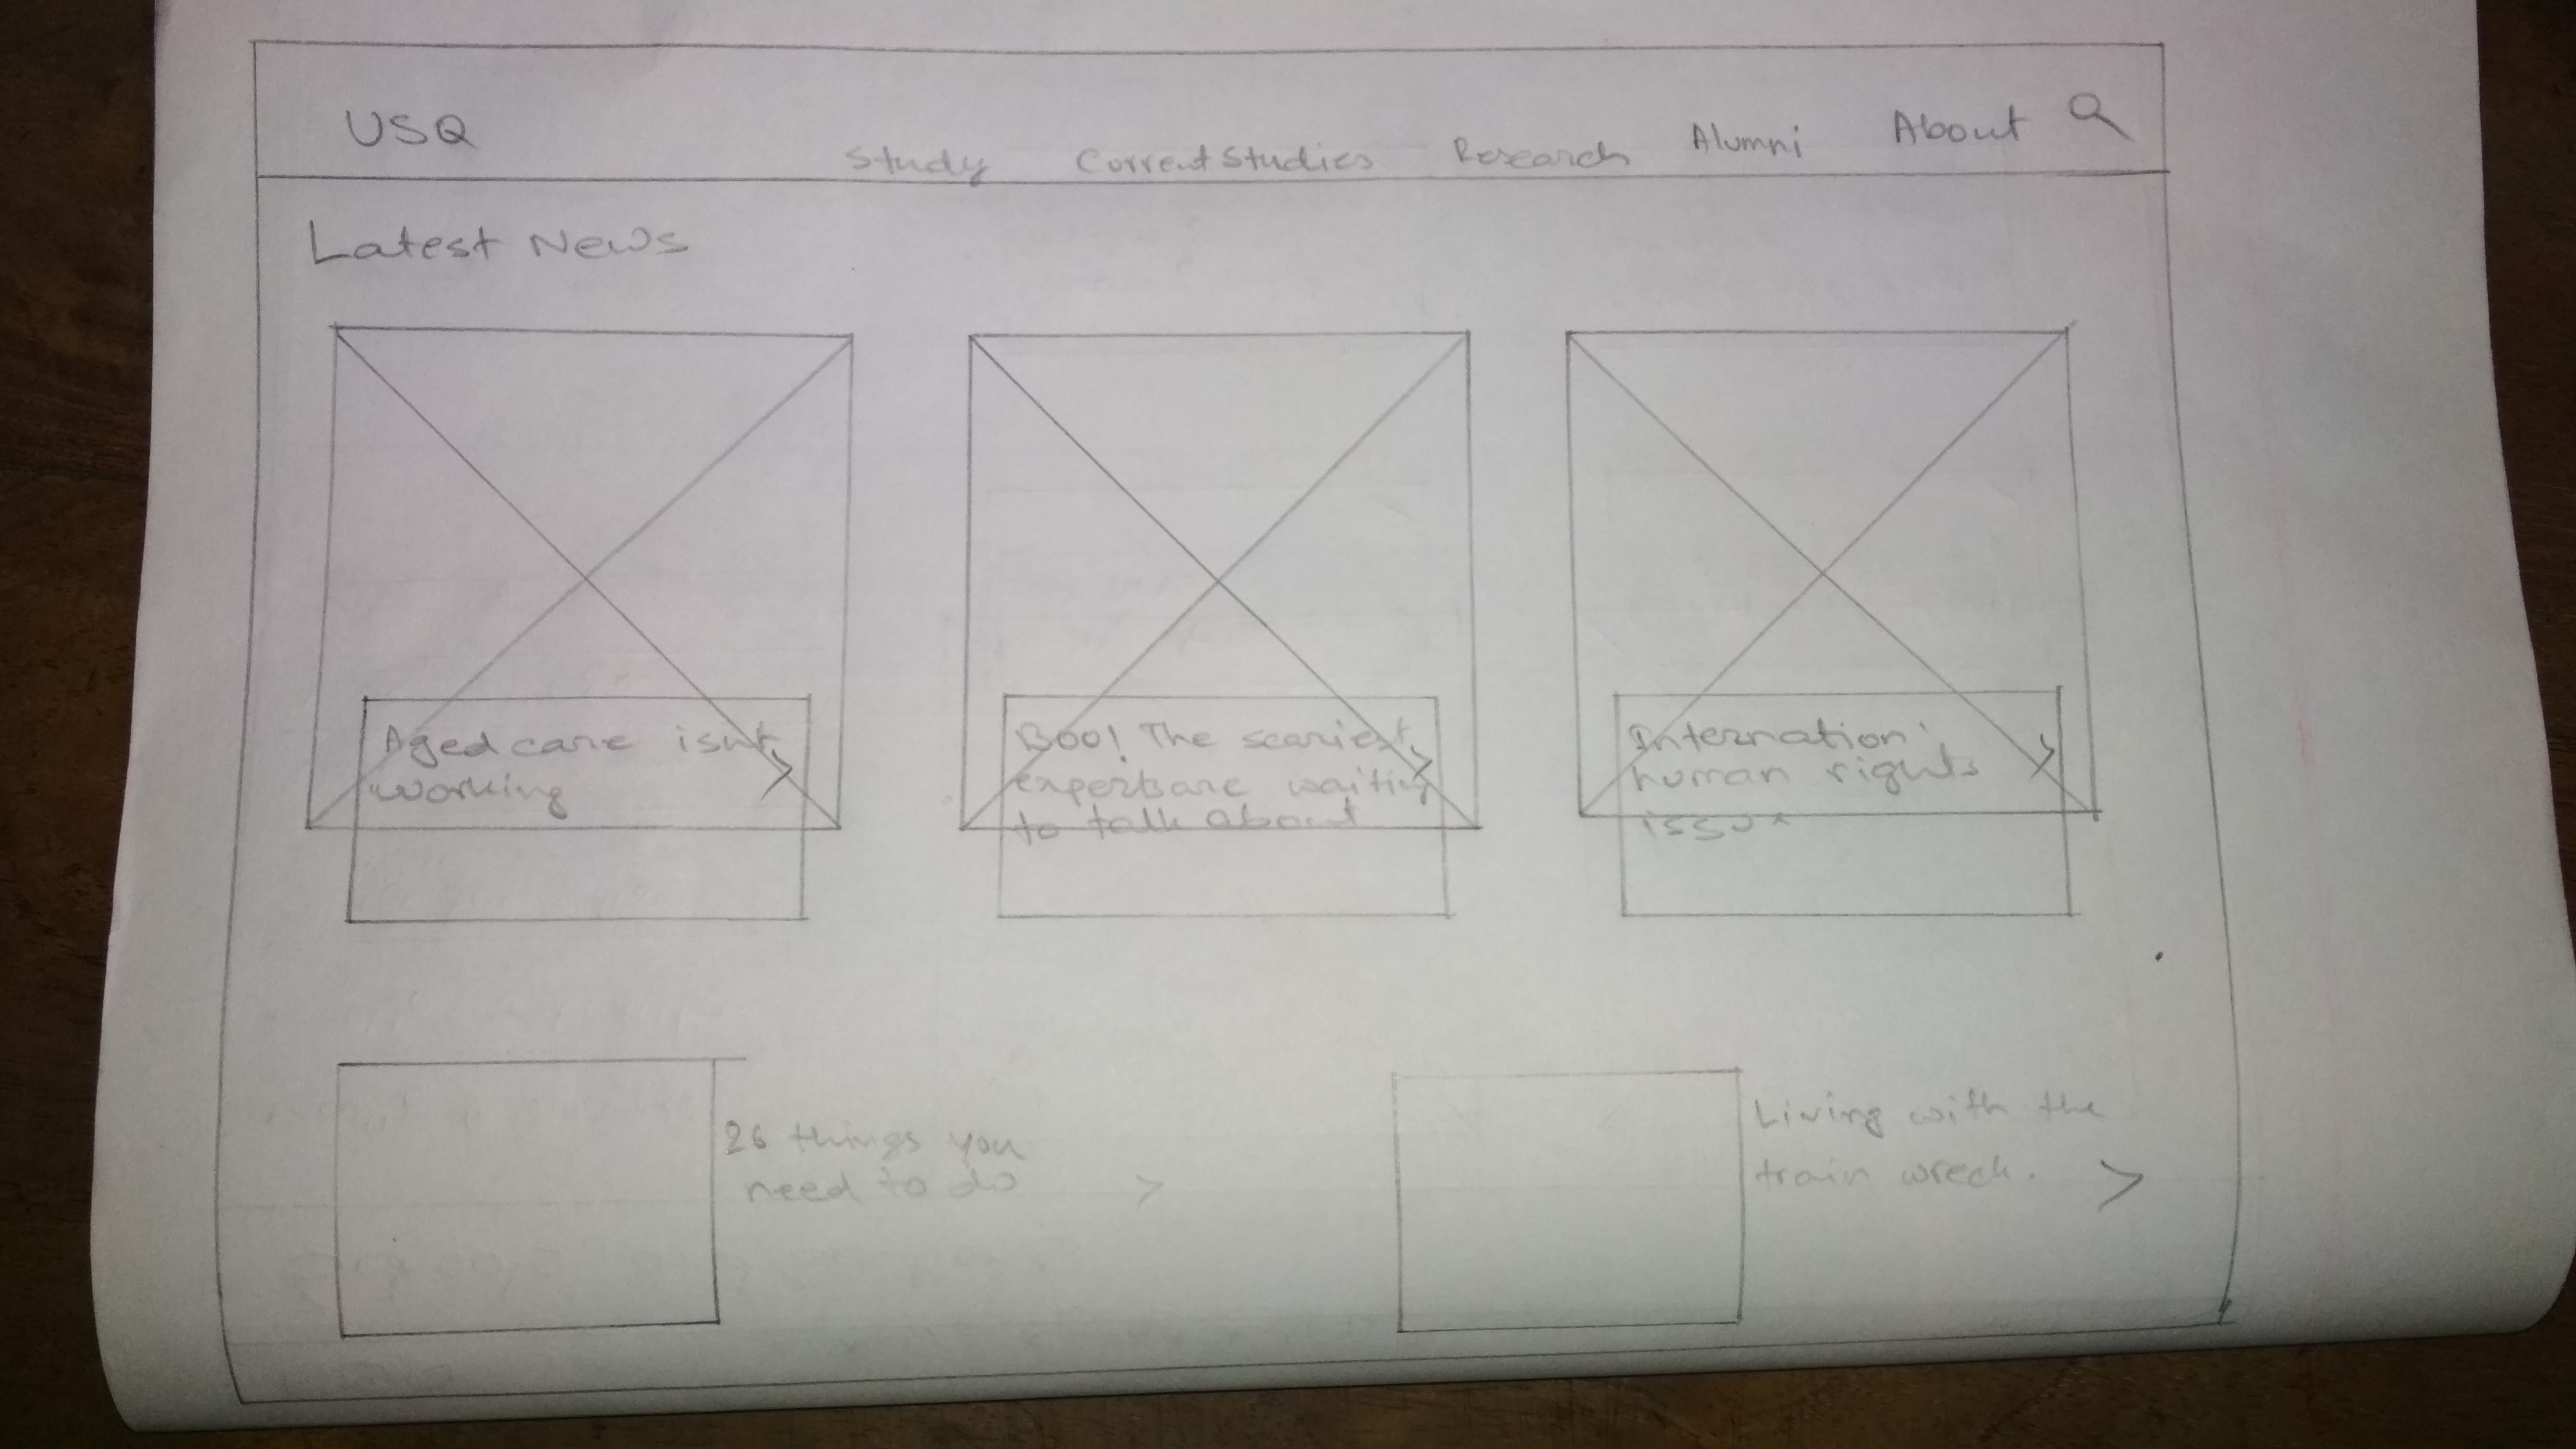 USQ
Study Current Studies Research Alumni About
Latest News
Aged care isn't
working
Boo! The scariest
experts are waiting
to talk about
Internation
human rights
26 things you
need to do
Living with the
train wreck.